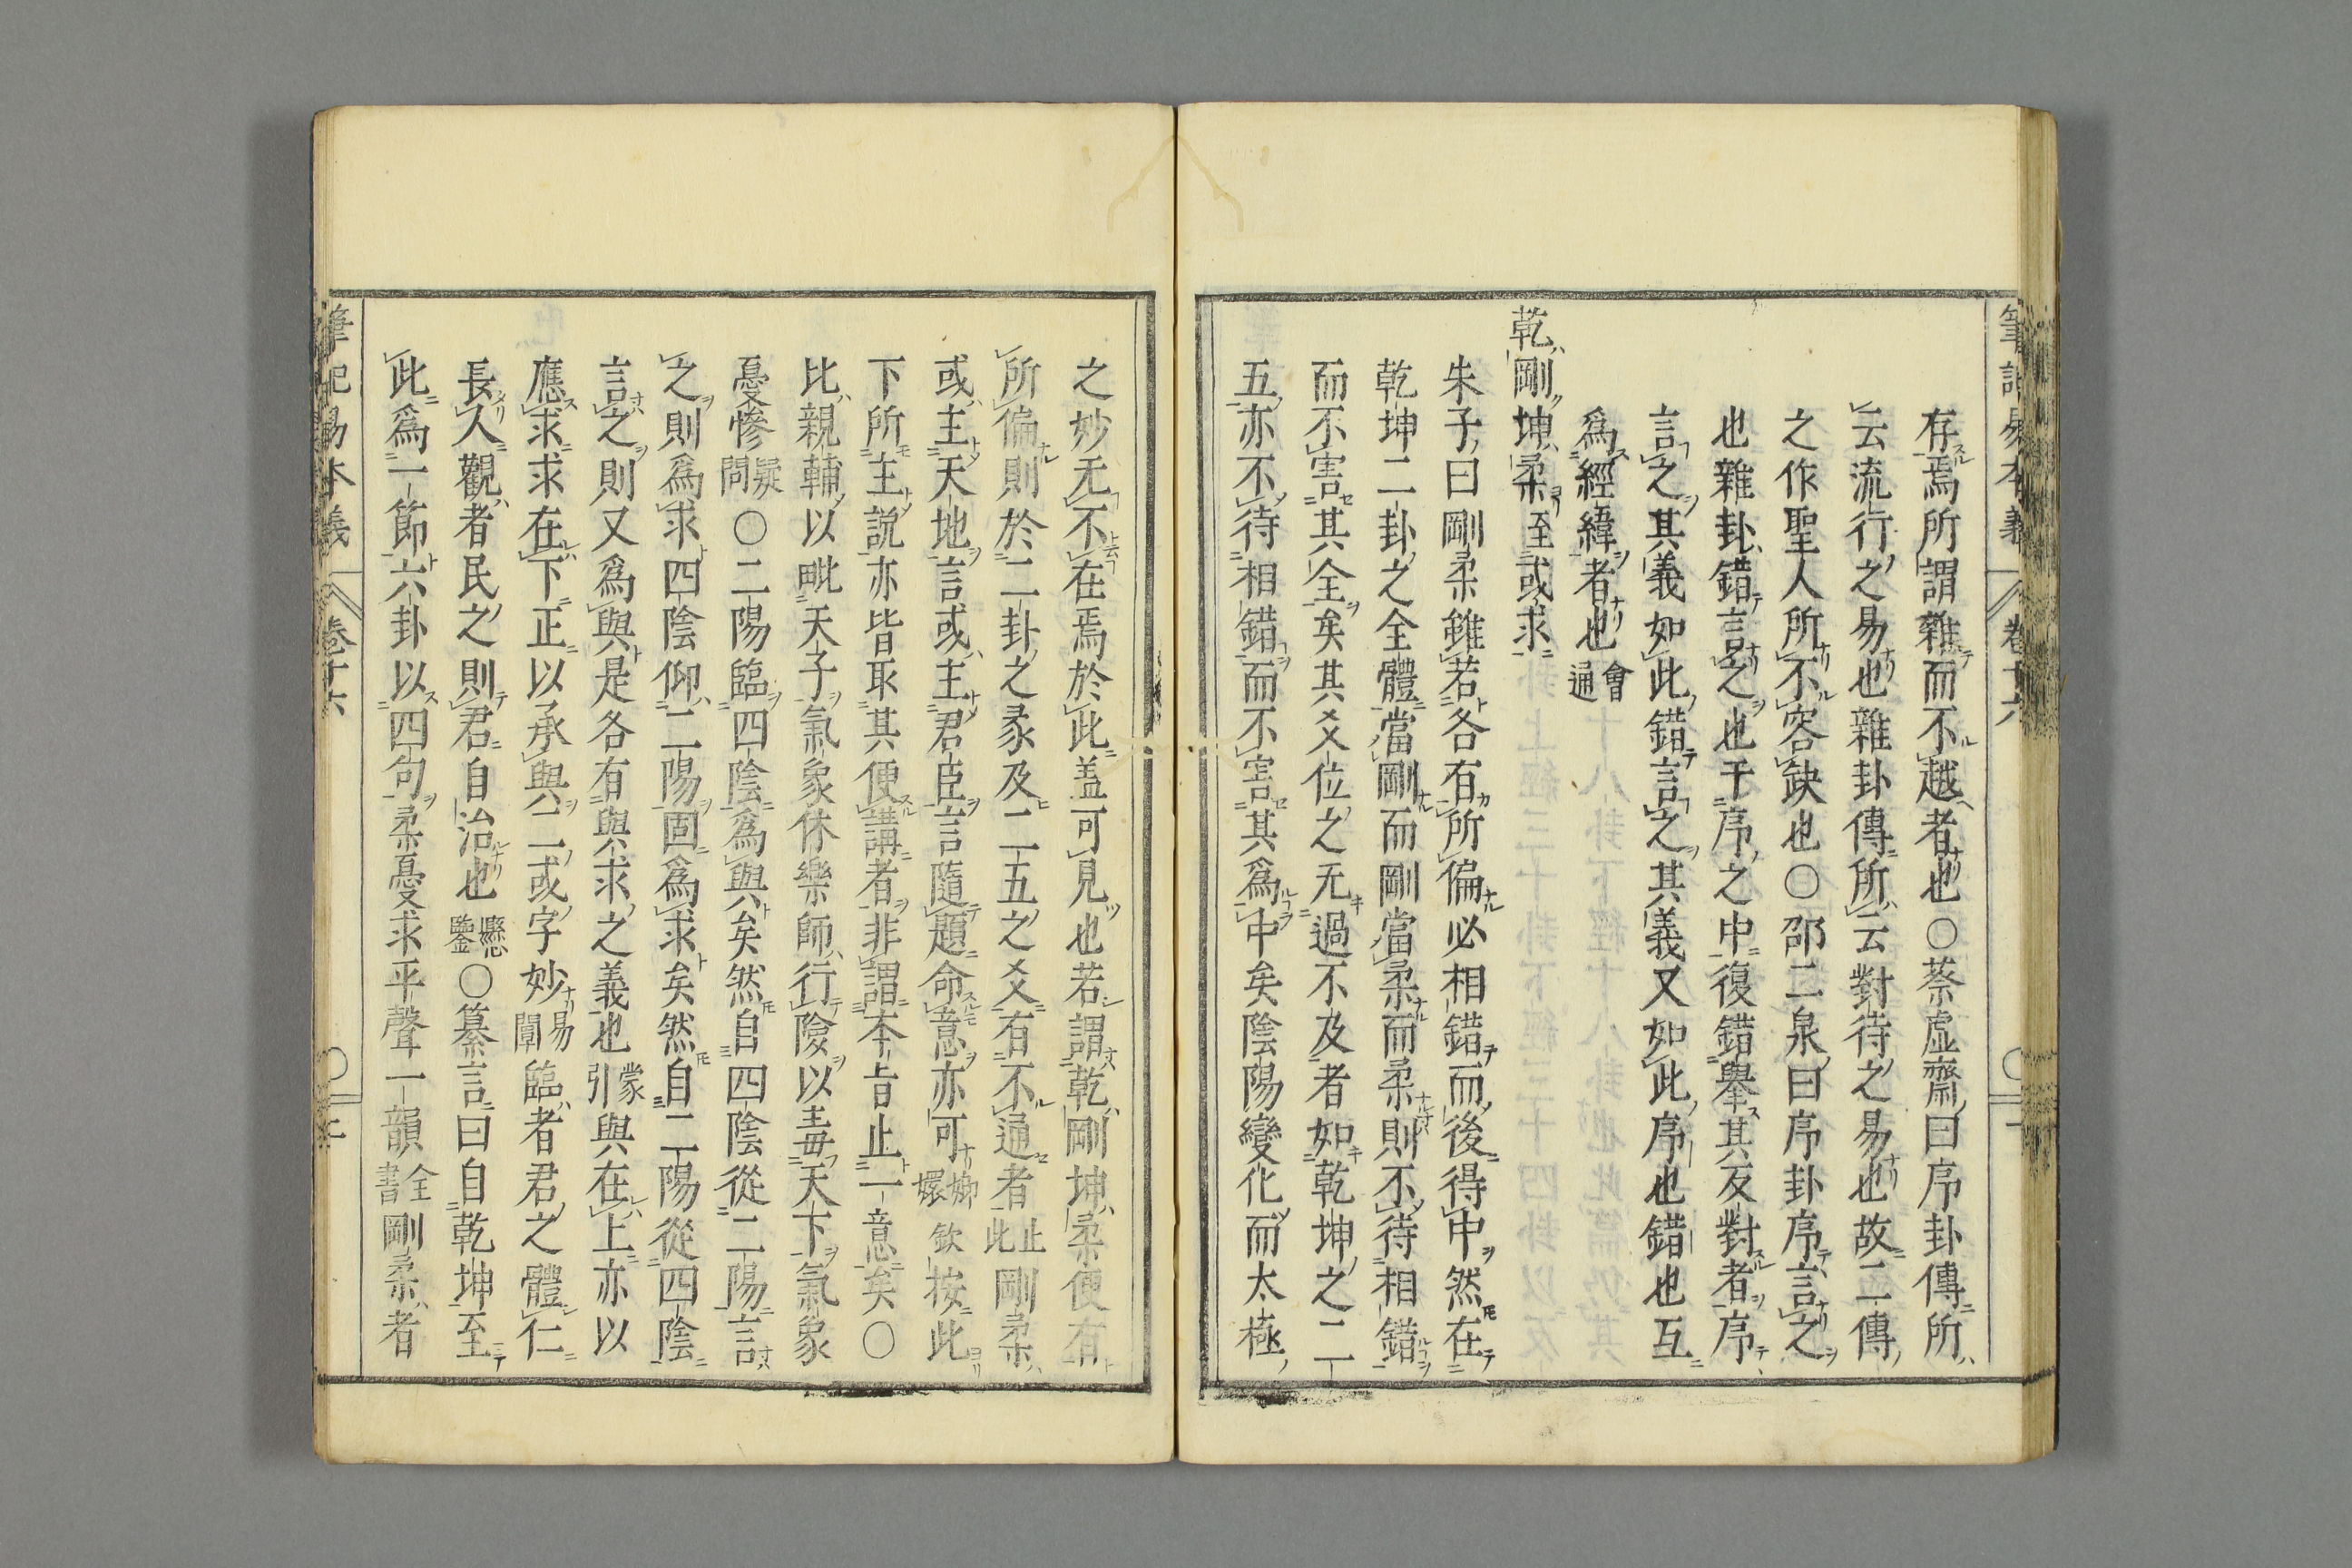 筆記易本義 卷十六
存焉所謂雜而不越者也○蔡虚齋曰序卦傳所
云流行之易也雜卦傳所云對待之易也故二傳
之作聖人所不容缺也○邵二泉曰序卦序言之
也雜卦錯言之也于序之中復錯舉其反對者序
言之其義如此錯言之其義又如此序也錯也互
爲經緯者也會通
乾剛坤柔至或求
朱子曰剛柔雖若各有所偏必相錯而後得中然在
乾坤二卦之全體當剛而剛當柔而柔則不待相錯
而不害其全矣其爻位之无過不及者如乾坤之二
五亦不待相錯而不害其爲中矣陰陽變化而太極
之妙无不在焉於此蓋可見也若謂乾剛坤柔便有
所偏則於二卦之彖及二五之爻有不通者止此剛柔
或主天地言或主君臣言隨題命意亦可嫏嬛欽按此
下所主説亦皆取其便講者非謂本旨止一意矣○
比親輔以毗天子氣象休樂師行險以毒天下氣象
憂慘疑問○二陽臨四陰爲與矣然自四陰從二陽言
之則爲求四陰仰二陽固爲求矣然自二陽從四陰
言之則又爲與是各有與求之義也蒙引與在上亦以
應求求在下正以承與二或字妙易闡臨者君之體仁
長人觀者民之則君自治也懸鑒○纂言曰自乾坤至
此爲一節六卦以四句柔憂求平聲一韻全書剛柔者
筆記易本義 卷十六 二